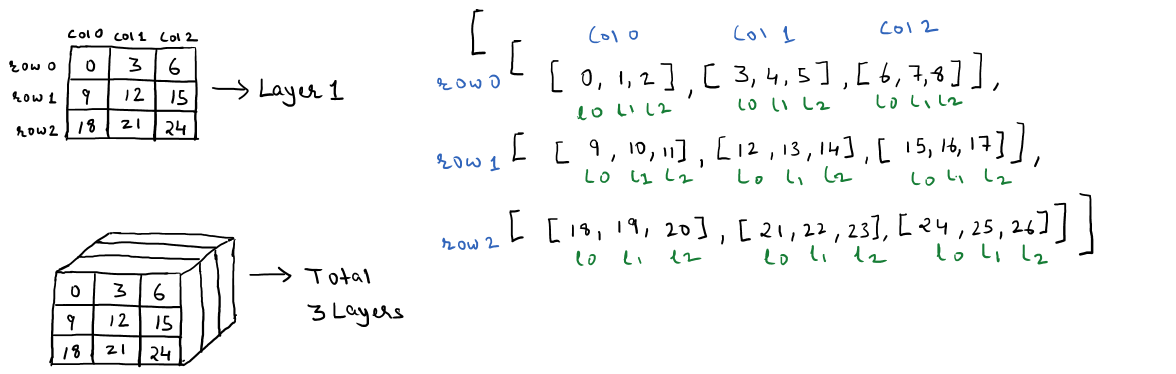 col 0 col 1 col 2
row 0 0 3 6
row 1 9 12 15
row 2 18 21 24
→ Layer 1
0 3 6
9 12 15
18 21 24
→ Total
3 Layers
[
col 0 col 1 col 2
row 0 [ [ 0, 1, 2 ] , [ 3, 4, 5 ] , [ 6, 7, 8 ] ] ,
l0 l1 l2 l0 l1 l2 l0 l1 l2
row 1 [ [ 9, 10, 11 ] , [ 12, 13, 14 ] , [ 15, 16, 17 ] ] ,
l0 l1 l2 l0 l1 l2 l0 l1 l2
row 2 [ [ 18, 19, 20 ] , [ 21, 22, 23 ] , [ 24, 25, 26 ] ] ]
l0 l1 l2 l0 l1 l2 l0 l1 l2